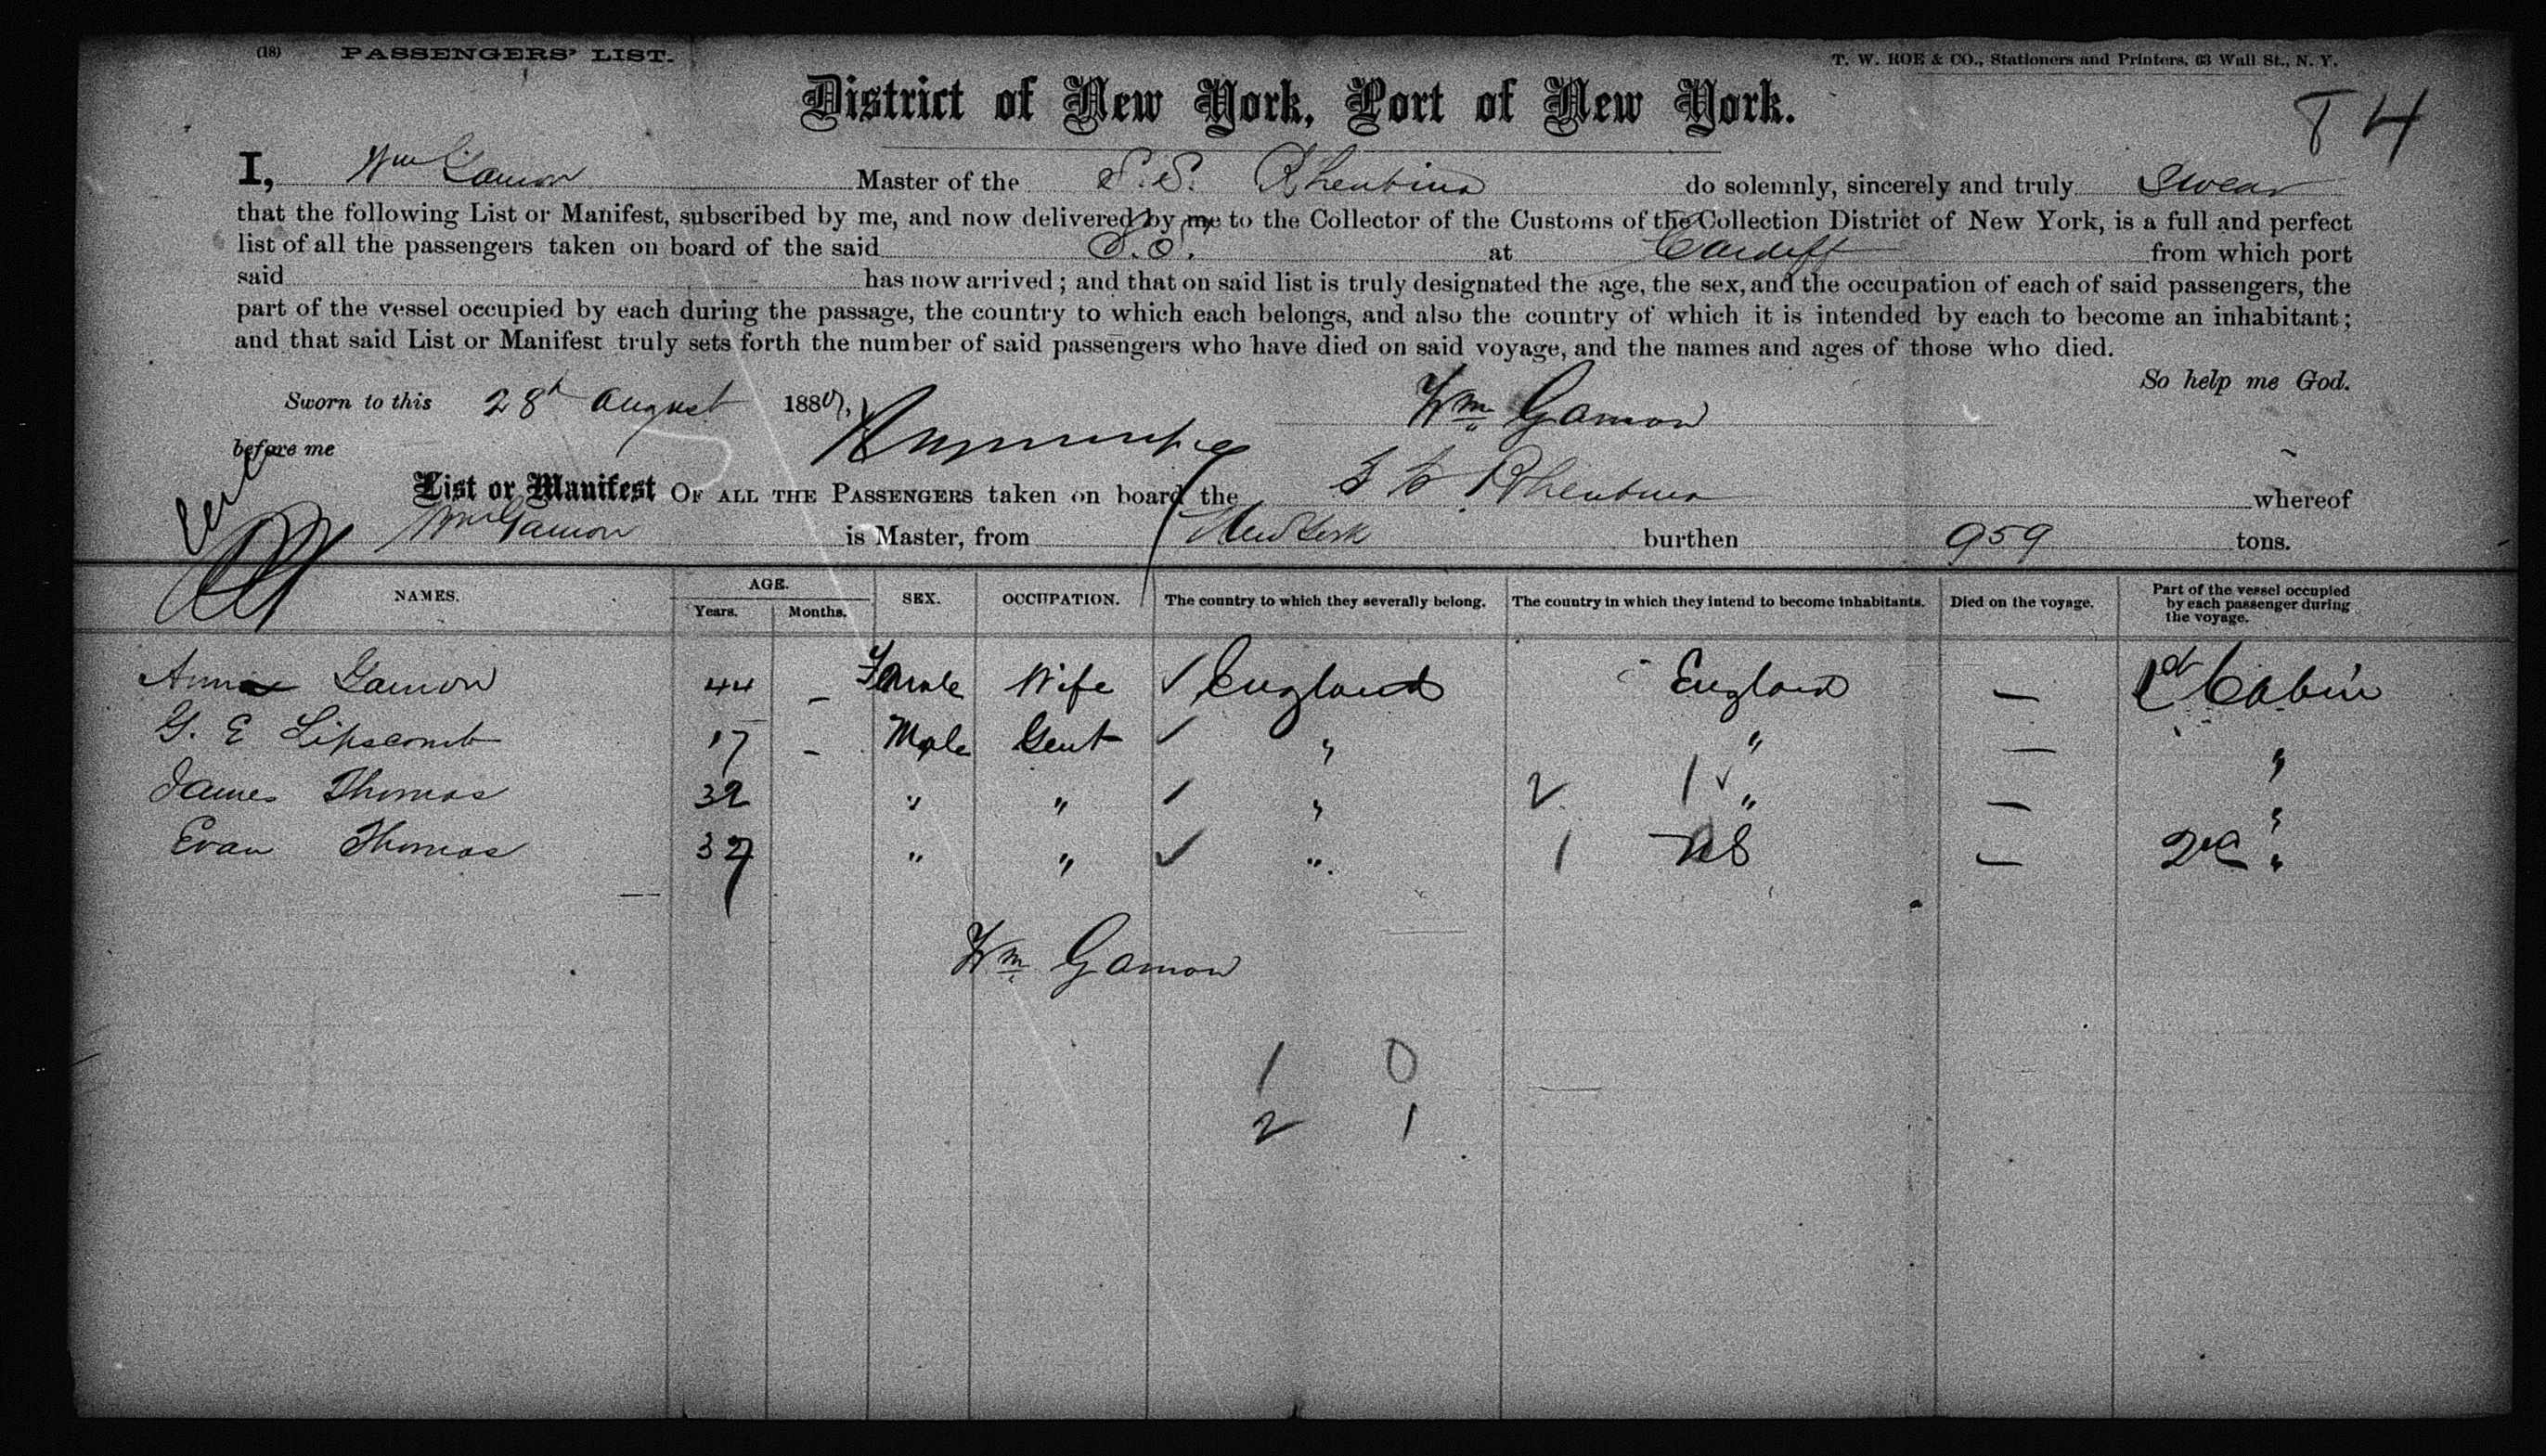 (18) PASSENGERS' LIST.
T. W. ROE & CO., Stationers and Printers, 63 Wall St., N. Y.
District of New York, Port of New York.
T 4
I, Wm Gamon Master of the S.S. Rheubina do solemnly, sincerely and truly Swear
that the following List or Manifest, subscribed by me, and now delivered by me to the Collector of the Customs of the Collection District of New York, is a full and perfect
list of all the passengers taken on board of the said S.S. at Cardiff from which port
said has now arrived; and that on said list is truly designated the age, the sex, and the occupation of each of said passengers, the
part of the vessel occupied by each during the passage, the country to which each belongs, and also the country of which it is intended by each to become an inhabitant;
and that said List or Manifest truly sets forth the number of said passengers who have died on said voyage, and the names and ages of those who died.
So help me God.
Sworn to this 28th August 188
Wm Gamon
before me
List or Manifest OF ALL THE PASSENGERS taken on board the S S Rheubina whereof
Wm Gamon is Master, from New York burthen 959 tons.
NAMES. AGE. Years. Months. SEX. OCCUPATION. The country to which they severally belong. The country in which they intend to become inhabitants. Died on the voyage. Part of the vessel occupied by each passenger during the voyage.
Gamon 44 – Female Wife ✓ England England — 1st Cabin
G. E Lipscomb 17 – Male Gent ✓ " " — "
James Thomas 32 " " ✓ " 2 1 ✓ " — "
Evan Thomas 37 " " ✓ " 1 — 2nd "
Wm Gamon
1 0
2 1